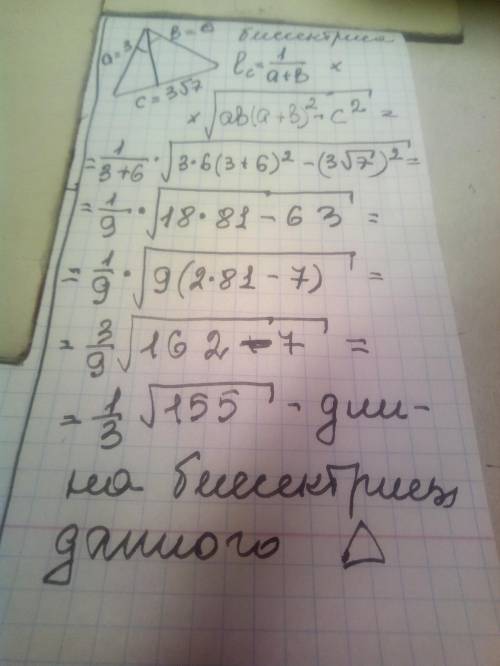 a=3 b=6 биссектриса
c=3√7 lc=1/(a+b) ×
×√(ab(a+b)²-c²) =
=1/(3+6)·√(3·6(3+6)²-(3√7)²)=
=1/9·√(18·81-63) =
=1/9·√(9(2·81-7)) =
=3/9√(162-7) =
=1/3 √155 - дли-
на биссектрисы
данного △